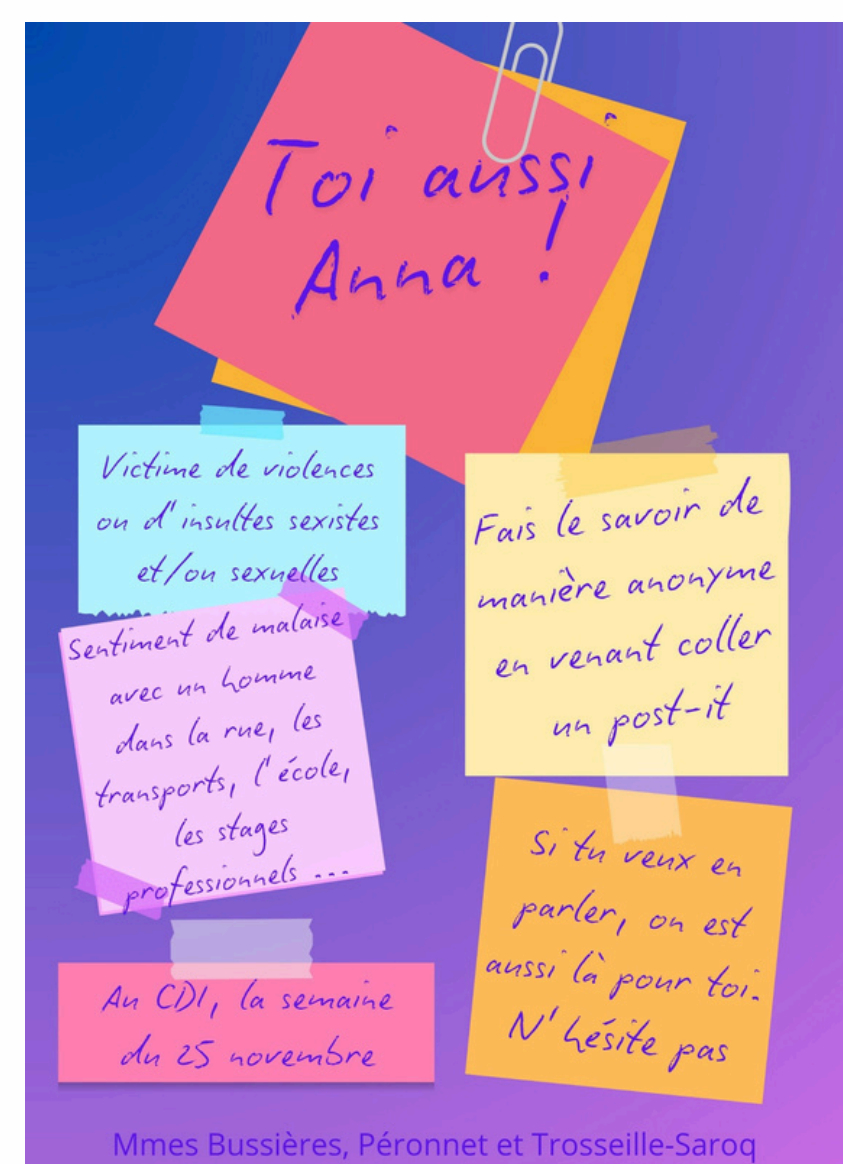 Toi aussi
Anna !
Victime de violences
ou d'insultes sexistes
et/ou sexuelles
Sentiment de malaise
avec un homme
dans la rue, les
transports, l'école,
les stages
professionnels ...
Au CDI, la semaine
du 25 novembre
Fais le savoir de
manière anonyme
en venant coller
un post-it
Si tu veux en
parler, on est
aussi là pour toi.
N'hésite pas
Mmes Bussières, Péronnet et Trosseille-Saroq